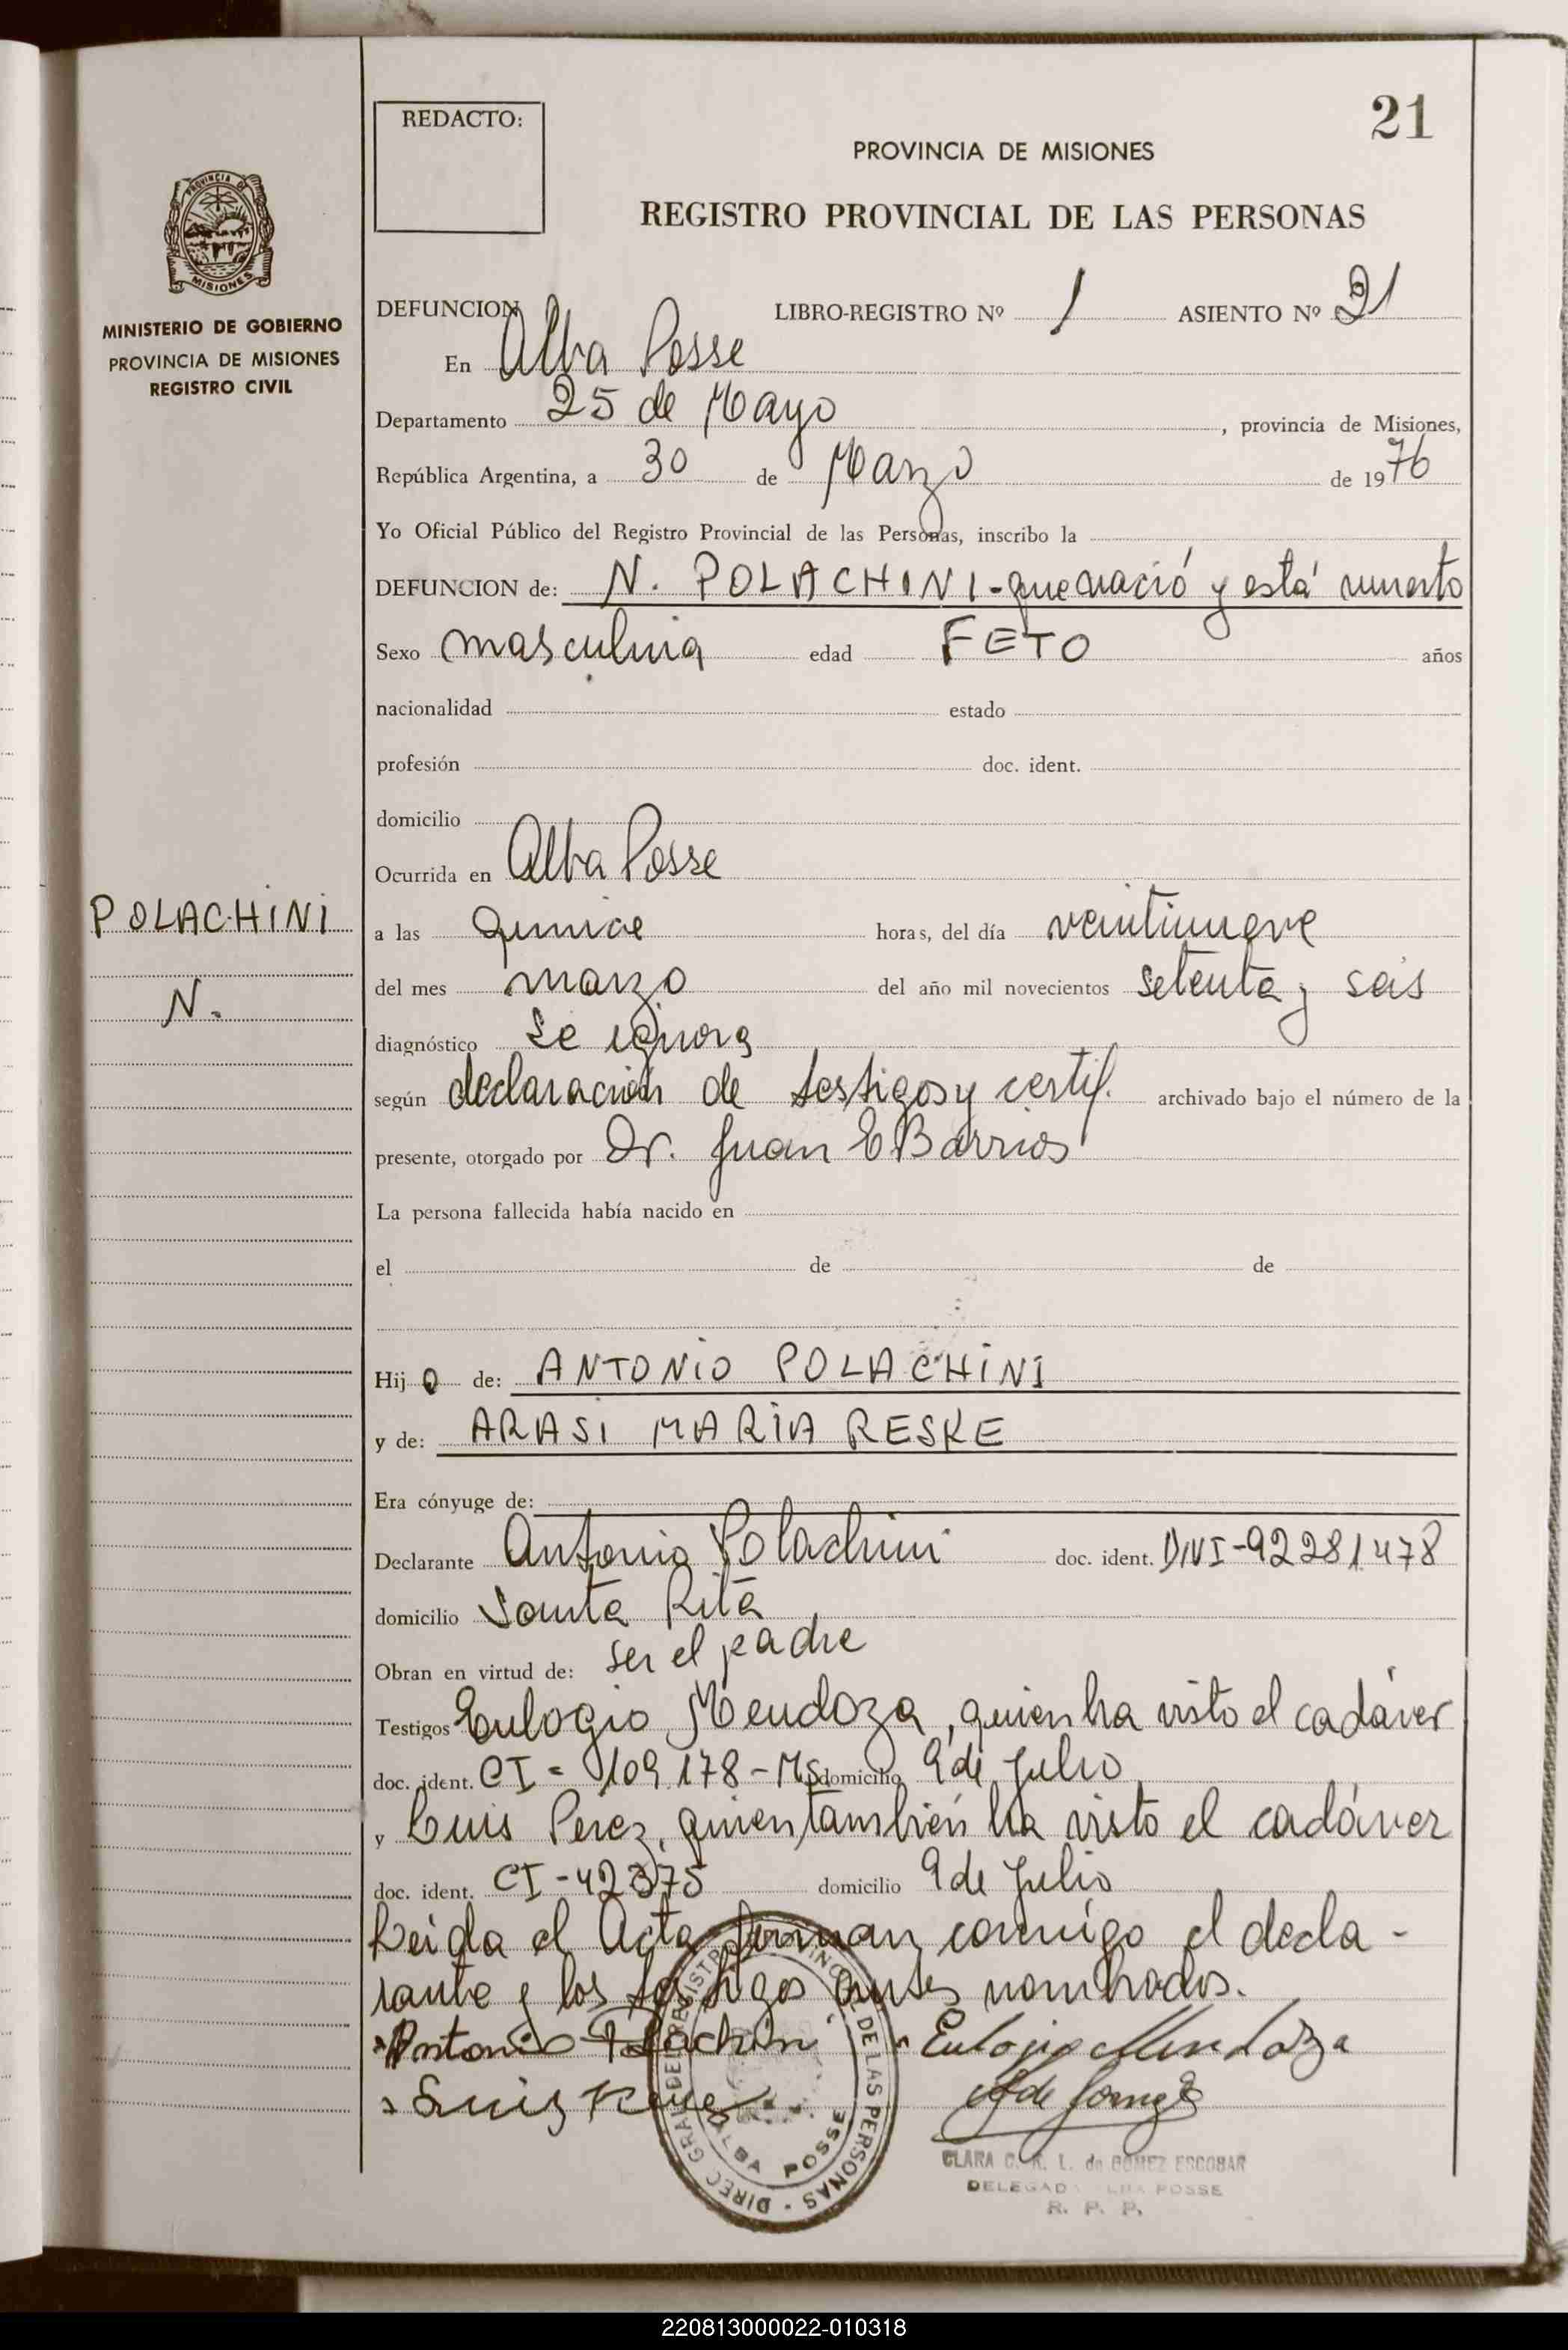 21
REDACTO:
PROVINCIA DE MISIONES
REGISTRO PROVINCIAL DE LAS PERSONAS
PROVINCIA DE
MISIONES
MINISTERIO DE GOBIERNO
PROVINCIA DE MISIONES
REGISTRO CIVIL
DEFUNCION LIBRO-REGISTRO Nº 1 ASIENTO Nº 21
En Alba Posse
Departamento 25 de Mayo, provincia de Misiones,
República Argentina, a 30 de Marzo de 1976
Yo Oficial Público del Registro Provincial de las Personas, inscribo la
DEFUNCION de: N. POLACHINI - que nació y está muerto
Sexo masculina edad FETO años
nacionalidad estado
profesión doc. ident.
domicilio
Ocurrida en Alba Posse
POLACHINI
N.
a las quince horas, del día veintinueve
del mes marzo del año mil novecientos setenta y seis
diagnóstico Se ignora
según declaración de testigos y certif. archivado bajo el número de la
presente, otorgado por Dr. Juan E Barrios
La persona fallecida había nacido en
el de de
Hijo de: ANTONIO POLACHINI
y de: ARASI MARIA RESKE
Era cónyuge de:
Declarante Antonio Polachini doc. ident. DNI-92281.478
domicilio Santa Rita
Obran en virtud de: ser el padre
Testigos Eulogio Mendoza, quien ha visto el cadáver
doc. ident. CI - 109.178-MS domicilio 9 de Julio
y Luis Perez, quien también ha visto el cadáver
doc. ident. CI-42375 domicilio 9 de Julio
Leida el Acta firman conmigo el decla-
rante y los testigos antes nombrados.
Antonio Polachini Eulogio Mendoza
Luiz
DIREC. GRAL DE REGISTRO PROVINC. DE LAS PERSONAS
ALBA POSSE
CLARA C. R. L. de GOMEZ ESCOBAR
DELEGADA ALBA POSSE
R. P. P.
220813000022-010318